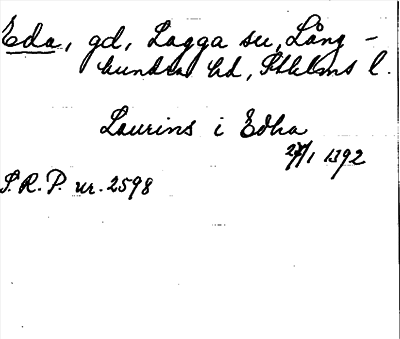 Eda, gd, Lagga sn, Lång-
hundra hd, Sthlms l.
Laurins i Edha
27/1 1392
S.R.P. nr. 2598